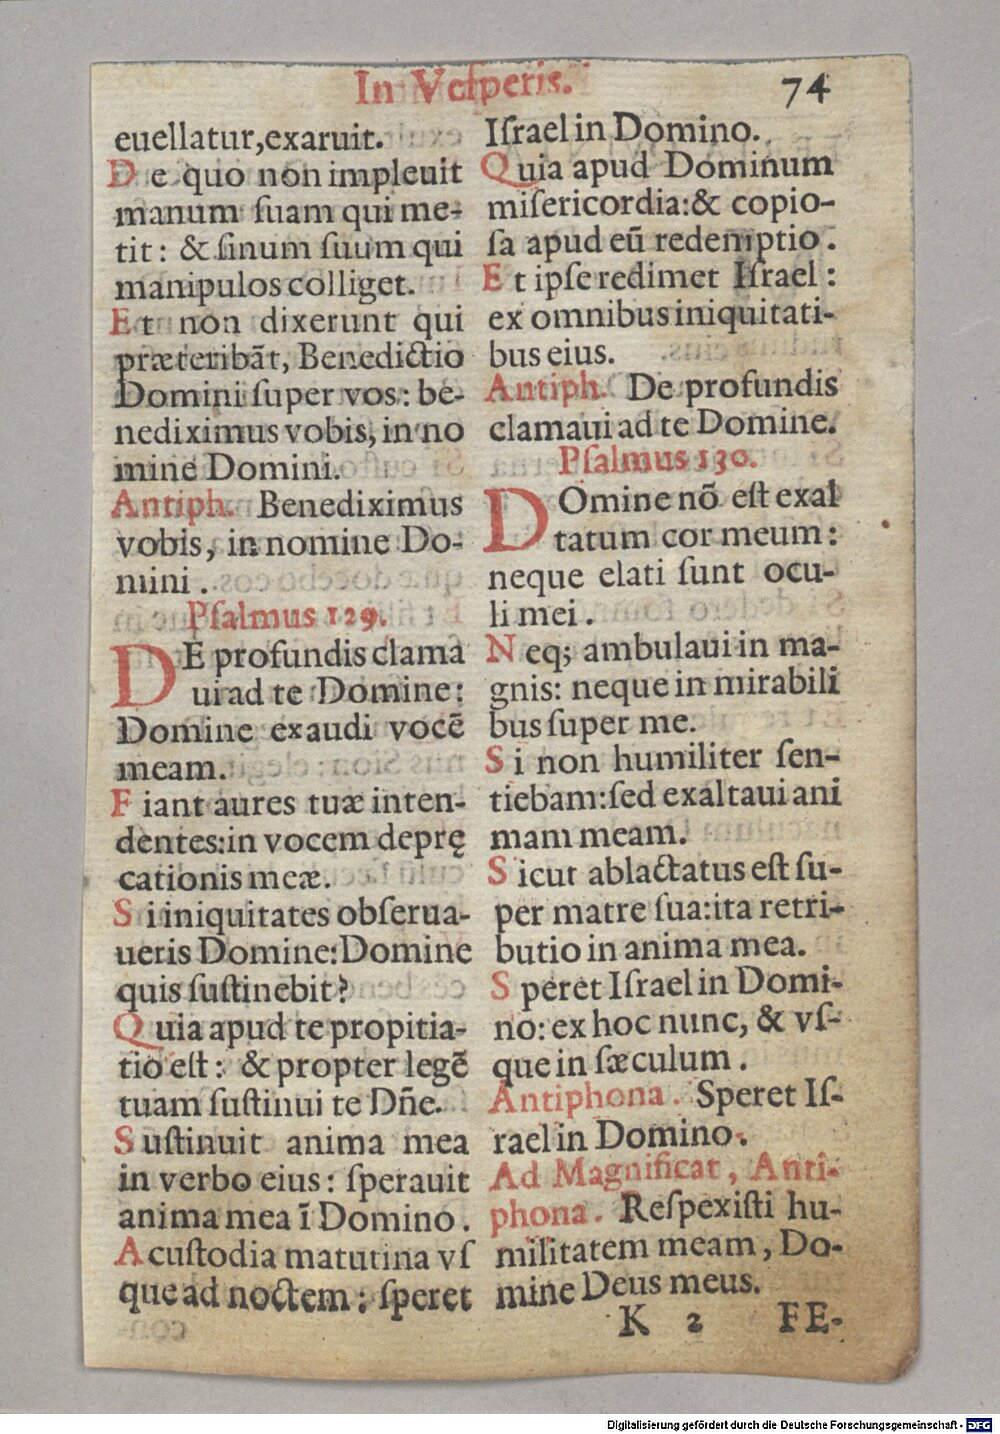 In Veſperis.
74
euellatur,exaruit.
De quo non impleuit
manum ſuam qui me-
tit: & ſinum ſuum qui
manipulos colliget.
Et non dixerunt qui
præteribãt, Benedictio
Domini ſuper vos: be-
nediximus vobis, in no
mine Domini.
Antiph. Benediximus
vobis, in nomine Do-
mini.
Pſalmus 129.
DE profundis clama
ui ad te Domine:
Domine exaudi vocẽ
meam.
Fiant aures tuæ inten-
dentes:in vocem deprę
cationis meæ.
Si iniquitates obſerua-
ueris Domine:Domine
quis ſuſtinebit?
Quia apud te propitia-
tio eſt: & propter legẽ
tuam ſuſtinui te Dñe.
Suſtinuit anima mea
in verbo eius: ſperauit
anima mea ĩ Domino.
A cuſtodia matutina vſ
que ad noctem: ſperet
Iſrael in Domino.
Quia apud Dominum
miſericordia:& copio-
ſa apud eũ redemptio.
Et ipſe redimet Iſrael:
ex omnibus iniquitati-
bus eius.
Antiph. De profundis
clamaui ad te Domine.
Pſalmus 130.
DOmine nõ eſt exal
tatum cor meum:
neque elati ſunt ocu-
li mei.
Neq; ambulaui in ma-
gnis: neque in mirabili
bus ſuper me.
Si non humiliter ſen-
tiebam:ſed exaltaui ani
mam meam.
Sicut ablactatus eſt ſu-
per matre ſua:ita retri-
butio in anima mea.
Speret Iſrael in Domi-
no: ex hoc nunc, & vſ-
que in ſæculum.
Antiphona. Speret Iſ-
rael in Domino.
Ad Magnificat, Anti-
phona. Reſpexiſti hu-
militatem meam, Do-
mine Deus meus.
K 2 FE-
Digitalisierung gefördert durch die Deutsche Forschungsgemeinschaft - DFG